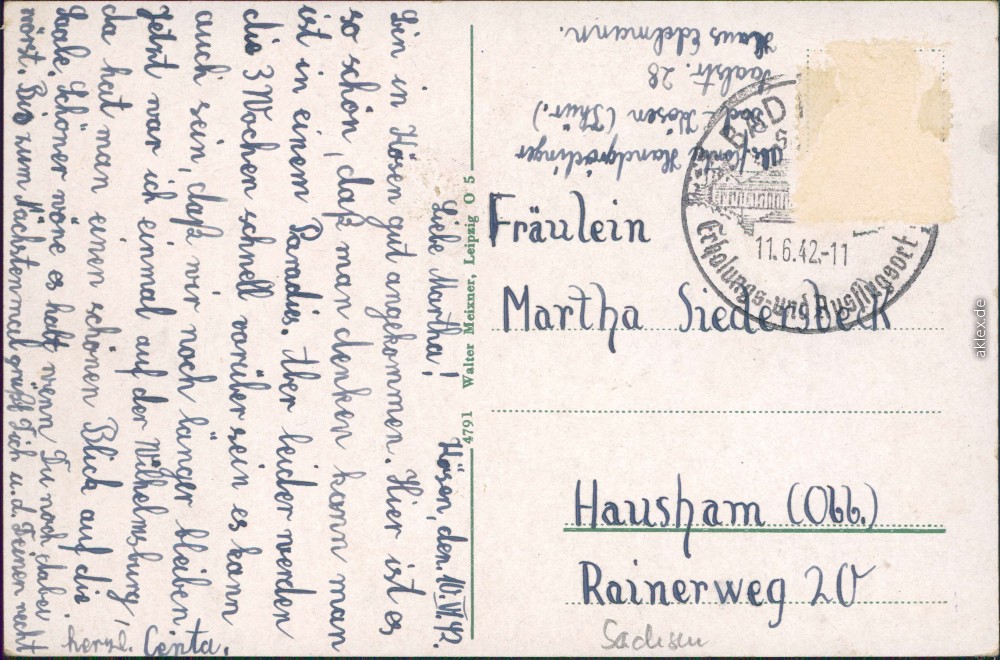 Kösen, den 10. VI. 42.
Liebe Martha!
Bin in Kösen gut angekommen. Hier ist es
so schön, daß man denken kann man
ist in einem Paradies. Aber leider werden
die 3 Wochen schnell vorüber sein es kann
auch sein, daß wir noch länger bleiben.
Jetzt war ich einmal auf der Wilhelmsburg,
da hat man einen schönen Blick auf die
Saale. Schöner wäre es halt wenn Du noch dabei
wärst. Bis zum Nächstenmal grüßt Dich u. d. Deinen recht
herzl. Centa.
4791 Walter Meixner, Leipzig O 5
Handgrödinger
Bad-Kösen (Thür.)
Saalstr. 28
Haus Edelmann.
BAD
11.6.42.-11
Erholungs- und Ausflugsort
Fräulein
Martha Siedersbeck
Hausham (Obb.)
Rainerweg 20
Sachsen
aklex.de